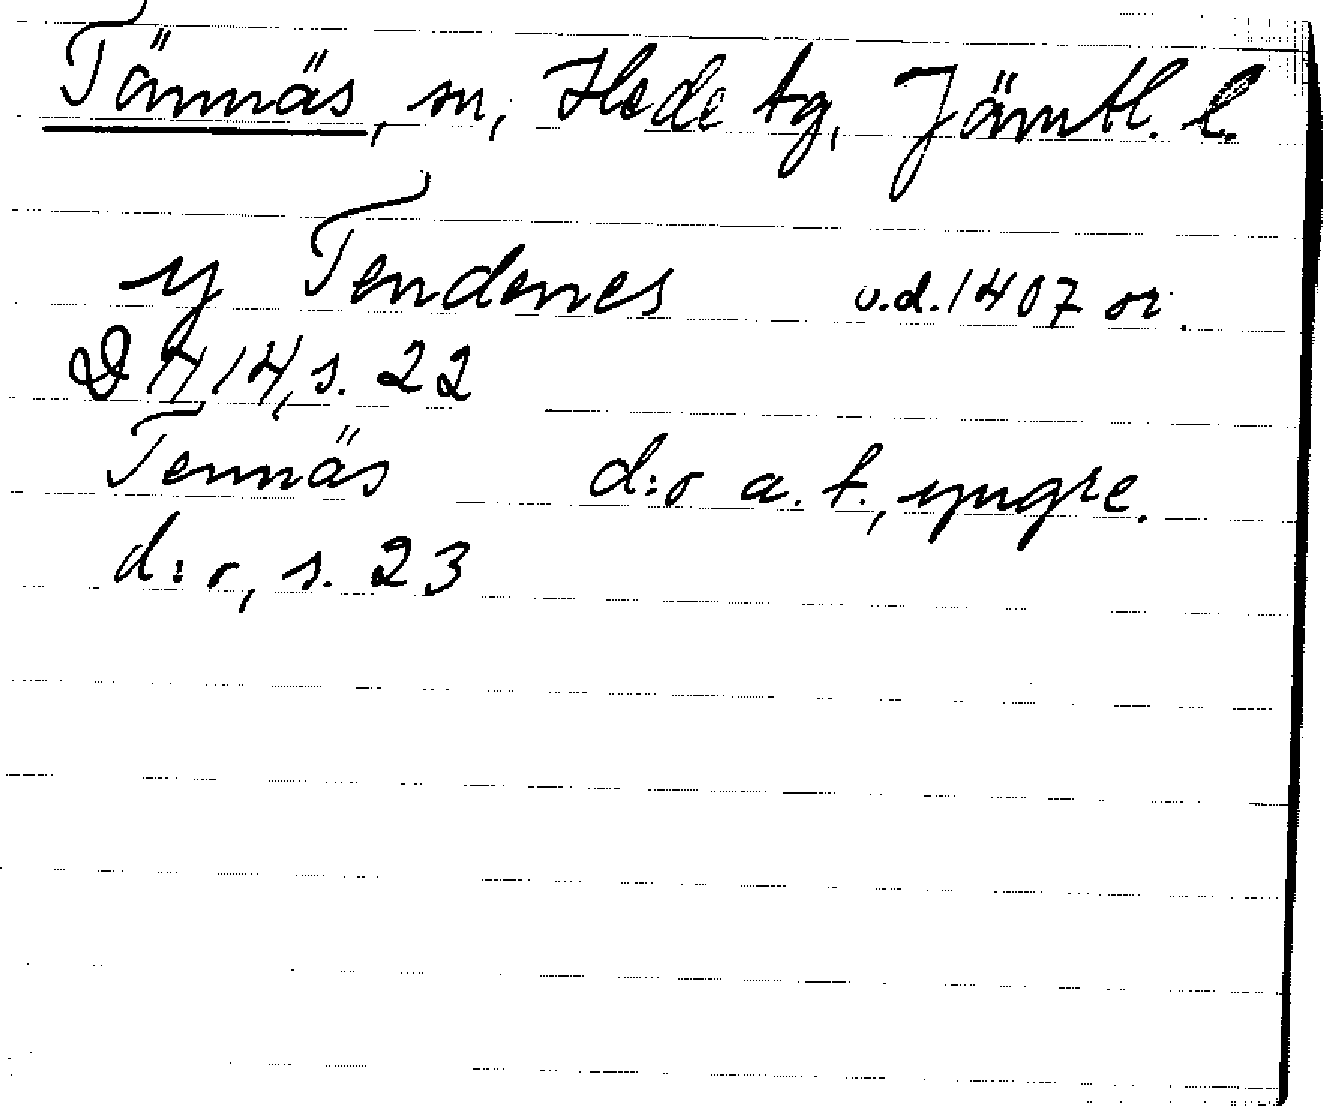 Tännäs, sn, Hede tg, Jämtl. l.
y Tendenes u.d. 1407 or.
D A 14, s. 22
Tennäs d:o a. t., yngre.
d:o, s. 23